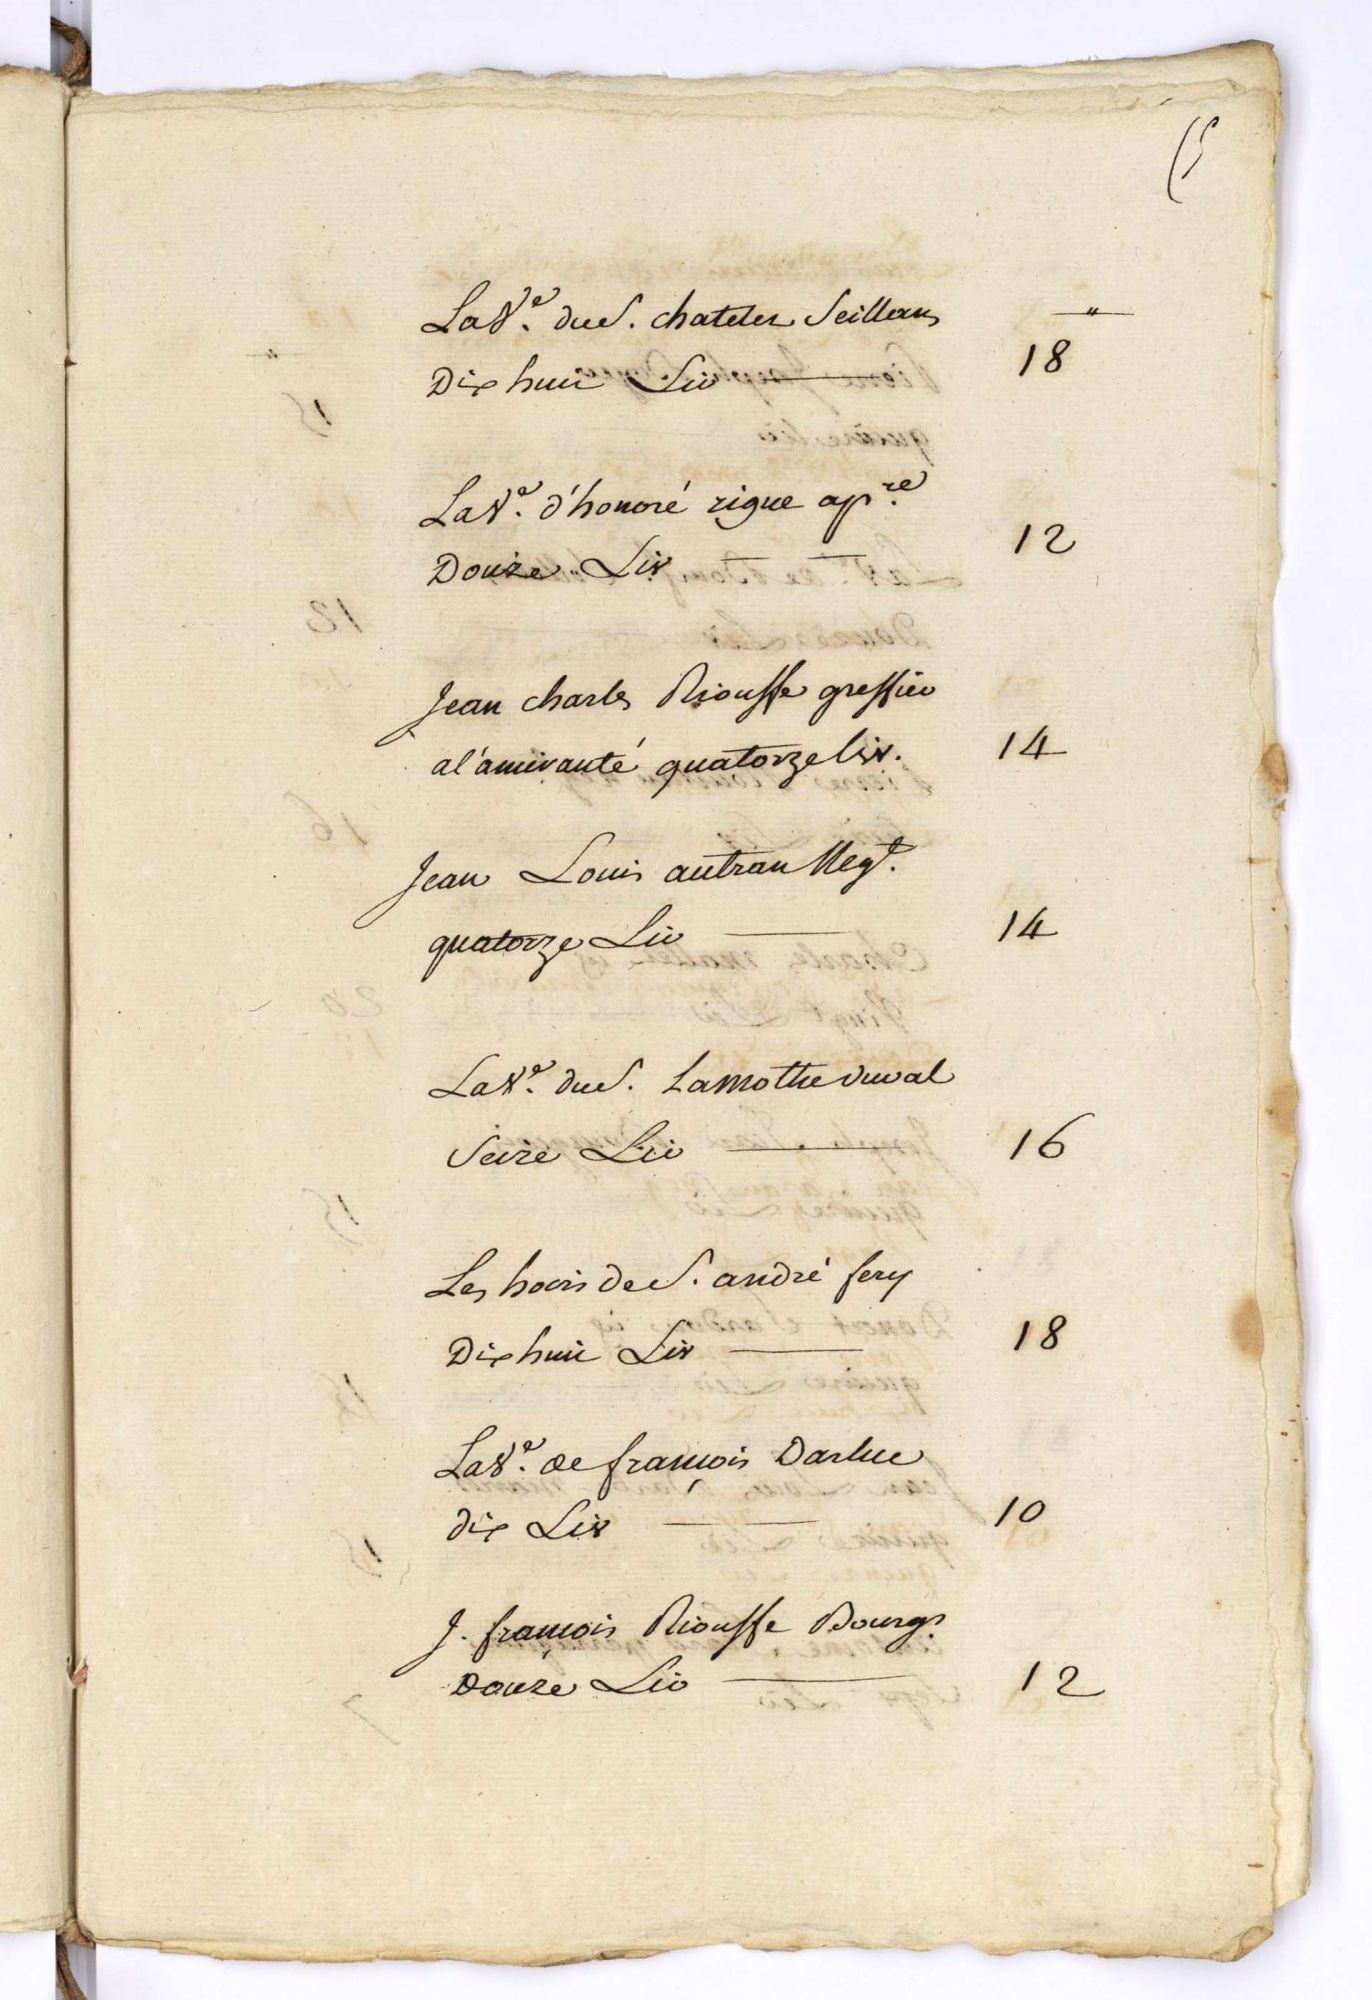 LaVe. du S. chateler Seillans
"
Dix huit Liv
18
LaVe. d'honoré rigue apre
Douze Liv
12
Jean charles Riouffe greffier
a l'amirauté quatorze liv.
14
Jean Louis autran Negt.
quatorze Liv
14
LaVe. du S. Lamothe duval
Seize Liv
16
Les hoirs de S. andré fery
Dix huit Liv
18
LaVe. de françois Darluc
dix Liv
10
J. françois Riouffe Bourgs
Douze Liv
12